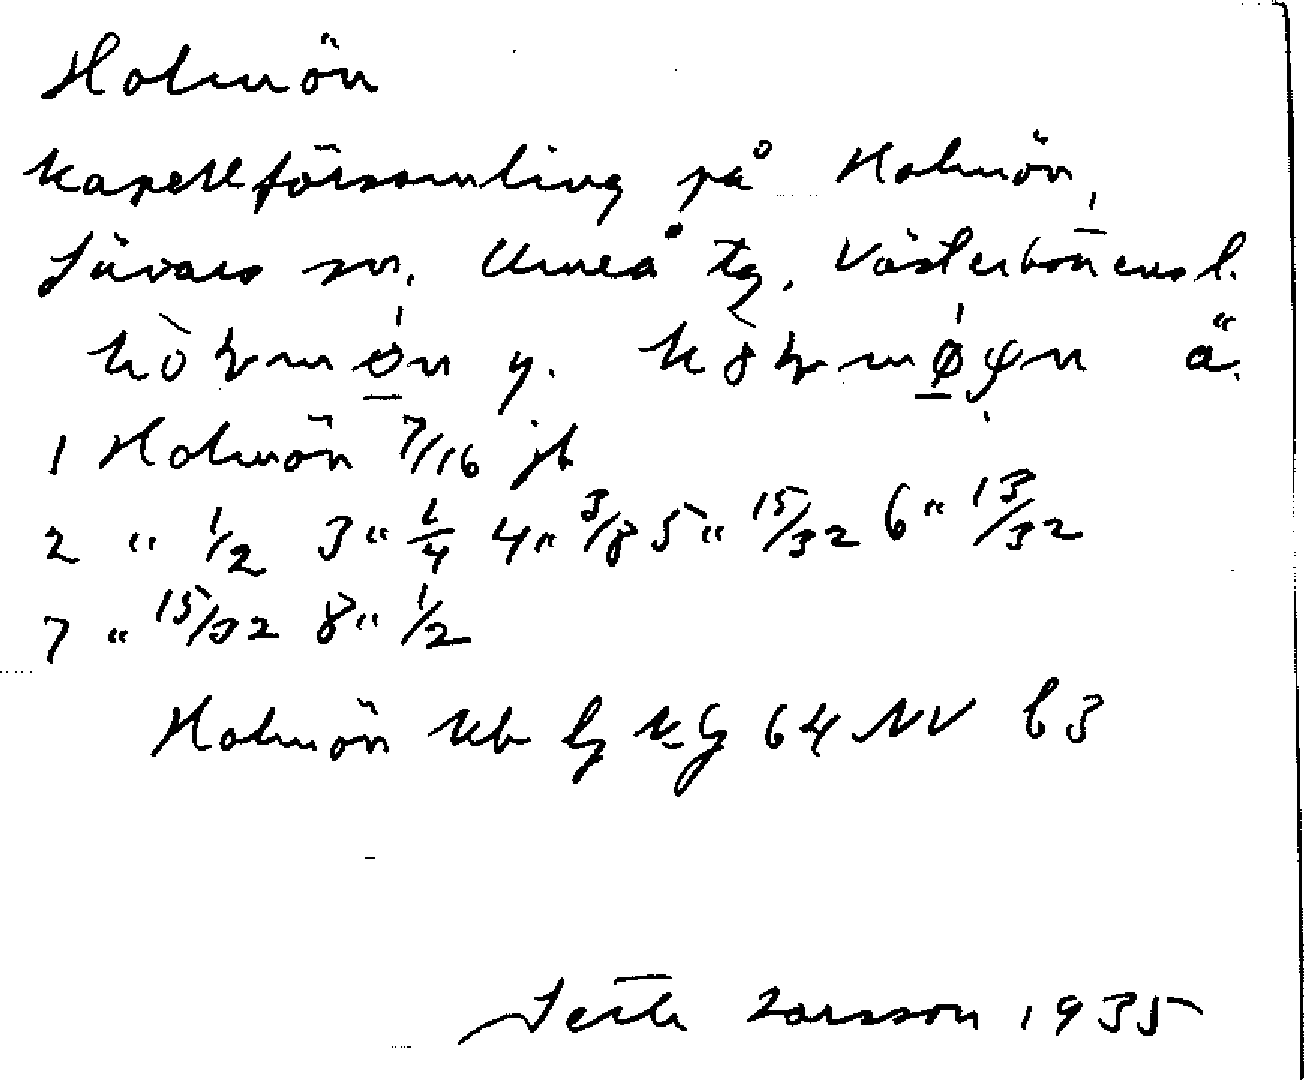 Holmön
kapellförsamling på Holmön,
Sävars sn. Umeå tg. Västerbottens l.
y. ä.
1 Holmön 7/16 jb
2 " 1/2 3 " 1/4 4 " 3/8 5 " 15/32 6 " 13/32
7 " 15/32 8 " 1/2
Holmön kb 64 NV b3
Larsson 1935